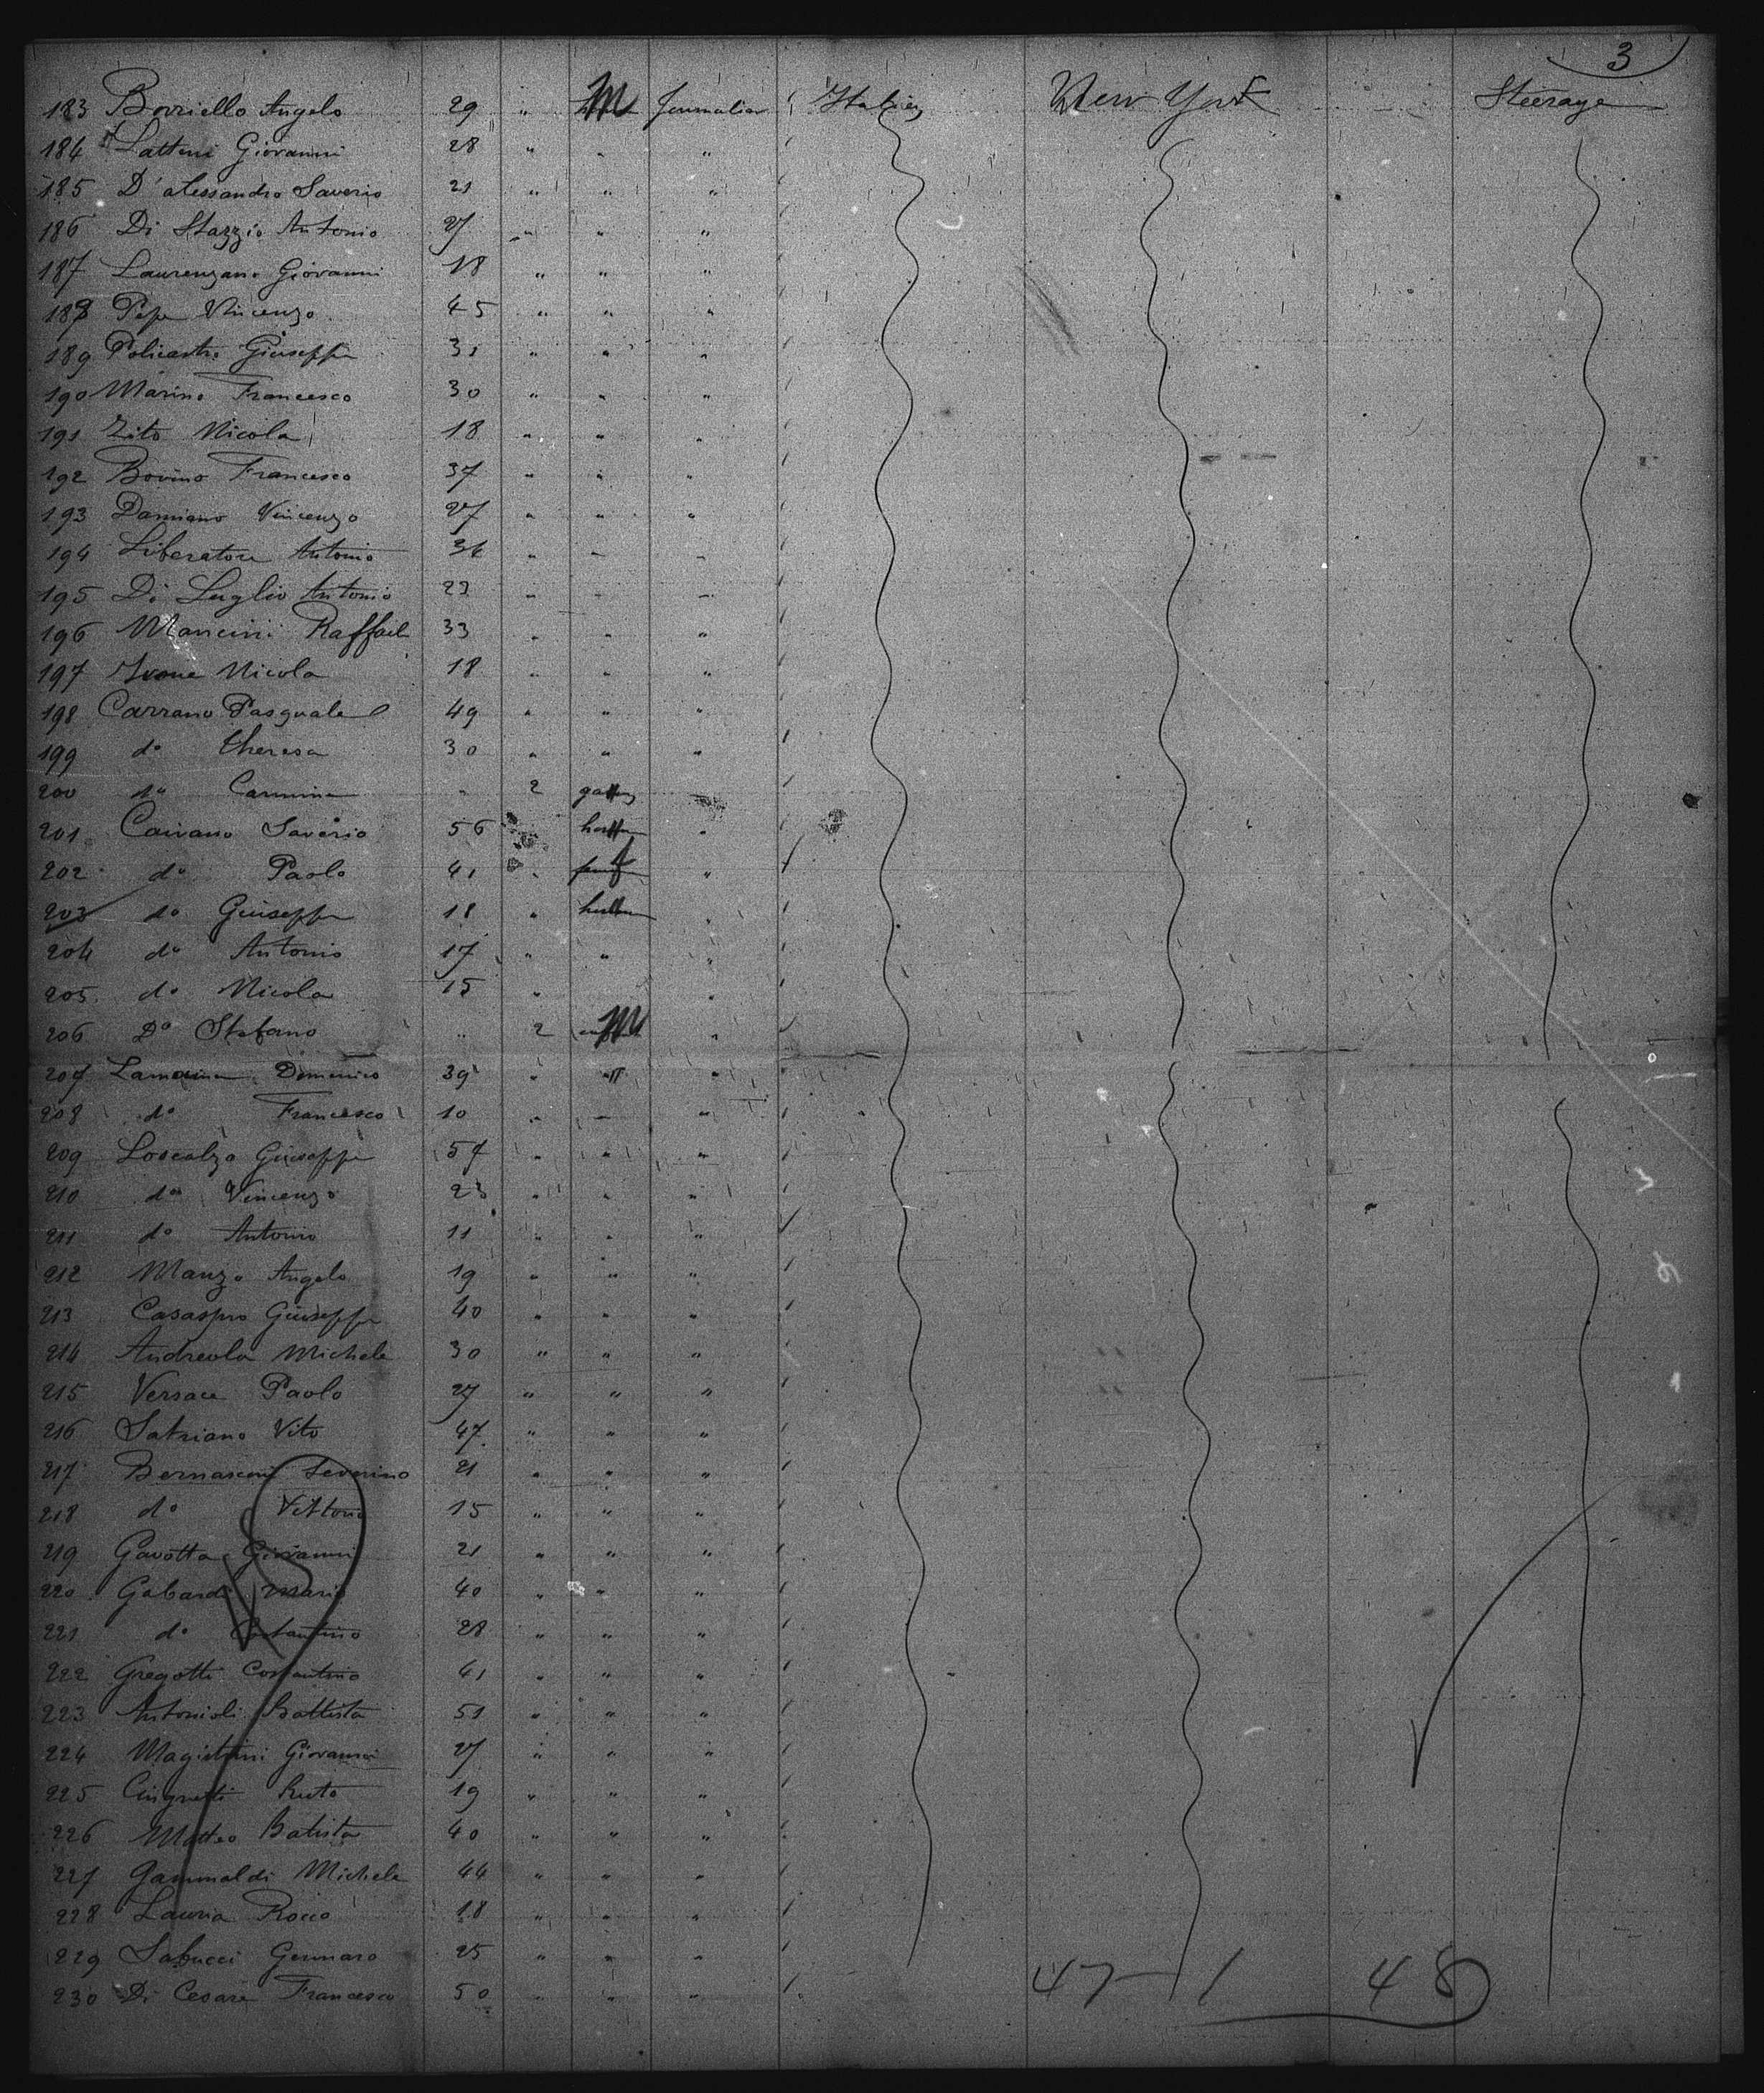 3
183 Borriello Angelo 29 " M Journalier Italien New York Steerage
184 Lattini Giovanni 28 " " "
185 D'alessandro Saverio 21 " " "
186 Di Stazzio Antonio 27 " " "
187 Laurenzano Giovanni 18 " " "
188 Pepe Vincenzo 45 " " "
189 Policastro Giuseppe 31 " " "
190 Marino Francesco 30 " " "
191 Zito Nicola 18 " " "
192 Bovino Francesco 37 " " "
193 Damiano Vincenzo 27 " " "
194 Liberatore Antonio 36 " " "
195 Di Luglio Antonio 23 " " "
196 Mancini Raffaele 33 " " "
197 Ivone Nicola 18 " " "
198 Carrano Pasquale 49 " " "
199 do Theresa 30 " " "
200 do Carmine " 2 "
201 Caivano Saverio 56 " "
202 do Paolo 41 " f "
203 do Giuseppe 18 " "
204 do Antonio 17 " " "
205 do Nicola 15 " "
206 Do Stefano " 2 M "
207 Domenico 39 " " "
208 do Francesco 10 " " "
209 Loscalzo Giuseppe 57 " " "
210 do Vincenzo 23 " " "
211 do Antonio 11 " " "
212 Manzo Angelo 19 " " "
213 Casaspro Giuseppe 40 " " "
214 Andreola Michele 30 " " "
215 Versace Paolo 27 " " "
216 Satriano Vito 47 " " "
217 Bernasconi Severino 21 " " "
218 do Vittorio 15 " " "
219 Gavotta Giovanni 21 " " "
220 Gabardi Mario 40 " " "
221 do Costantino 28 " " "
222 Gregotti Costantino 41 " " "
223 Antonioli Battista 51 " " "
224 Magistrini Giovanni 27 " " "
225 19 " " "
226 Matteo Batista 40 " " "
227 Gammaldi Michele 44 " " "
228 Lauria Rocco 18 " " "
229 Gennaro 25 " " "
230 Di Cesare Francesco 50 " " "
47 - 1 48